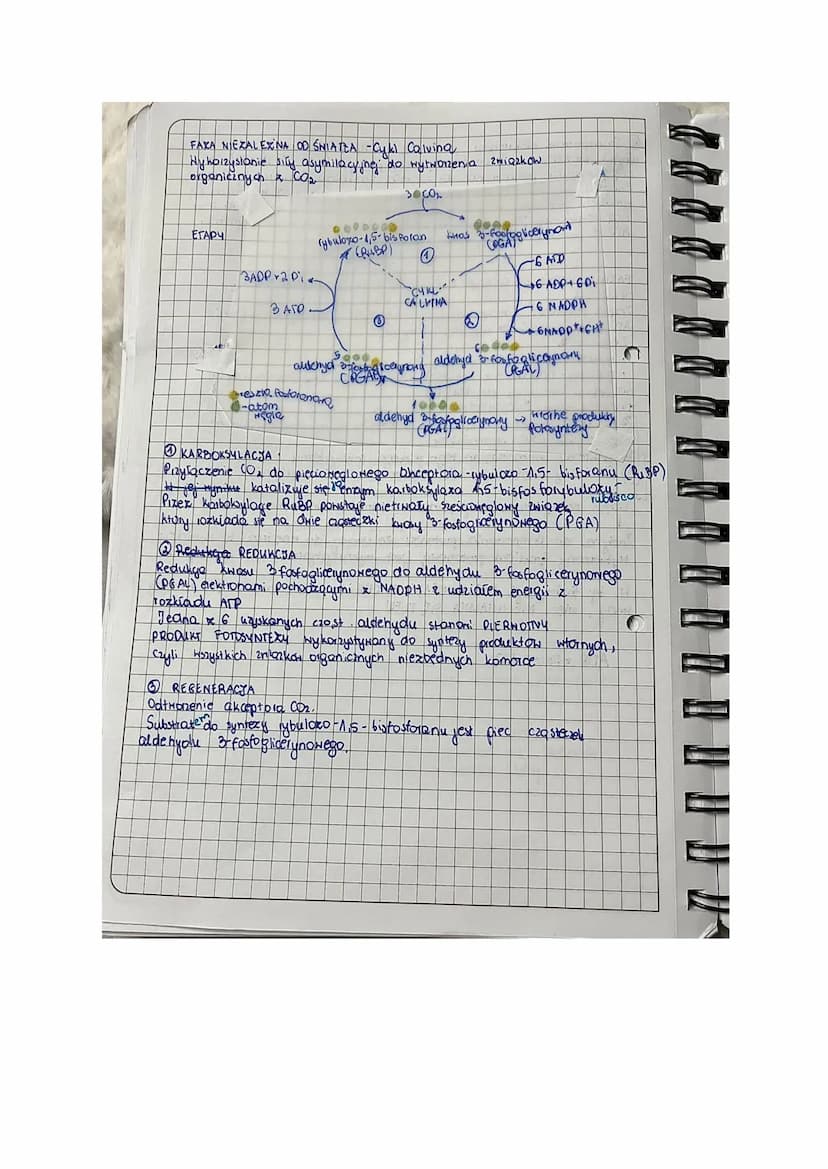 FAZA NIEZALEŻNA OD ŚWIATŁA - Cykl Calvina
Wykorzystanie siły asymilacyjnej do wytworzenia związków
organicznych z CO2
3 CO2
ETAPY
rybulozo-1,5-bisfosforan
(RuBP)
kwas 3-fosfoglicerynowy
(PGA)
1
6 ATP
6 ADP + 6Pi
6 NADPH
6NADP+ + 6H+
3ADP + 2Pi
3 ATP
CYKL
CALVINA
3
2
5
aldehyd 3-fosfoglicerynowy
(PGAL)
6
aldehyd 3-fosfoglicerynowy
(PGAL)
1
aldehyd 3-fosfoglicerynowy → wtórne produkty
(PGAL) fotosyntezy
- reszta fosforanowa
- atom
węgla
1 KARBOKSYLACJA
Przyłączenie CO2 do pięciowęglowego akceptora - rybulozo-1,5-bisfosforanu (RuBP)
W jej wyniku katalizuje ją enzym karboksylaza 1,5-bisfosforybulozy-
rubisco
Przez karboksylację RuBP powstaje nietrwały sześciowęglowy związek
który rozkłada się na dwie cząsteczki kwasu 3-fosfoglicerynowego (PGA)
2 Redukcja REDUKCJA
Redukcja kwasu 3-fosfoglicerynowego do aldehydu 3-fosfoglicerynowego
(PGAL) elektronami pochodzącymi z NADPH z udziałem energii z
rozkładu ATP
Jedna z 6 uzyskanych cząst. aldehydu stanowi PIERWOTNY
PRODUKT FOTOSYNTEZY wykorzystywany do syntezy produktów wtórnych,
czyli wszystkich związków organicznych niezbędnych komórce
3 REGENERACJA
Odtworzenie akceptora CO2.
Substratem do syntezy rybulozo-1,5-bisfosforanu jest pięć cząsteczek
aldehydu 3-fosfoglicerynowego.